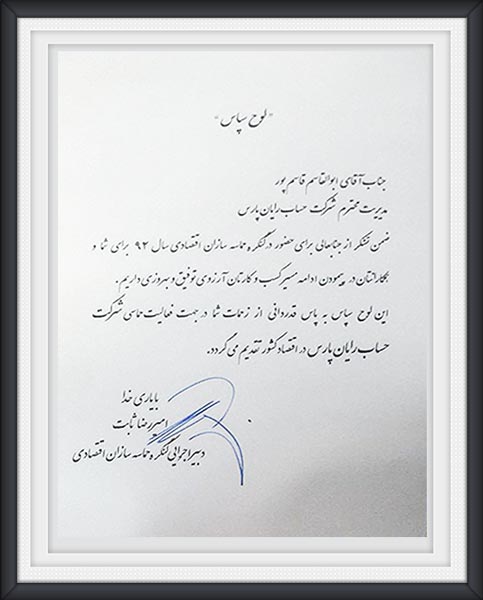 "لوح سپاس"
جناب آقای ابوالقاسم قاسم پور
مدیریت محترم شرکت حساب رایان پارس
ضمن تشکر از جنابعالی برای حضور در کنگره حماسه سازان اقتصادی سال ۹۲ برای شما و
همکارانتان در پیمودن ادامه مسیر کسب و کارتان آرزوی توفیق و بهروزی داریم.
این لوح سپاس به پاس قدردانی از زحمات شما در جهت فعالیت حماسی شرکت
حساب رایان پارس در اقتصاد کشور تقدیم می گردد.
با یاری خدا
امیررضا ثابت
دبیر اجرایی کنگره حماسه سازان اقتصادی